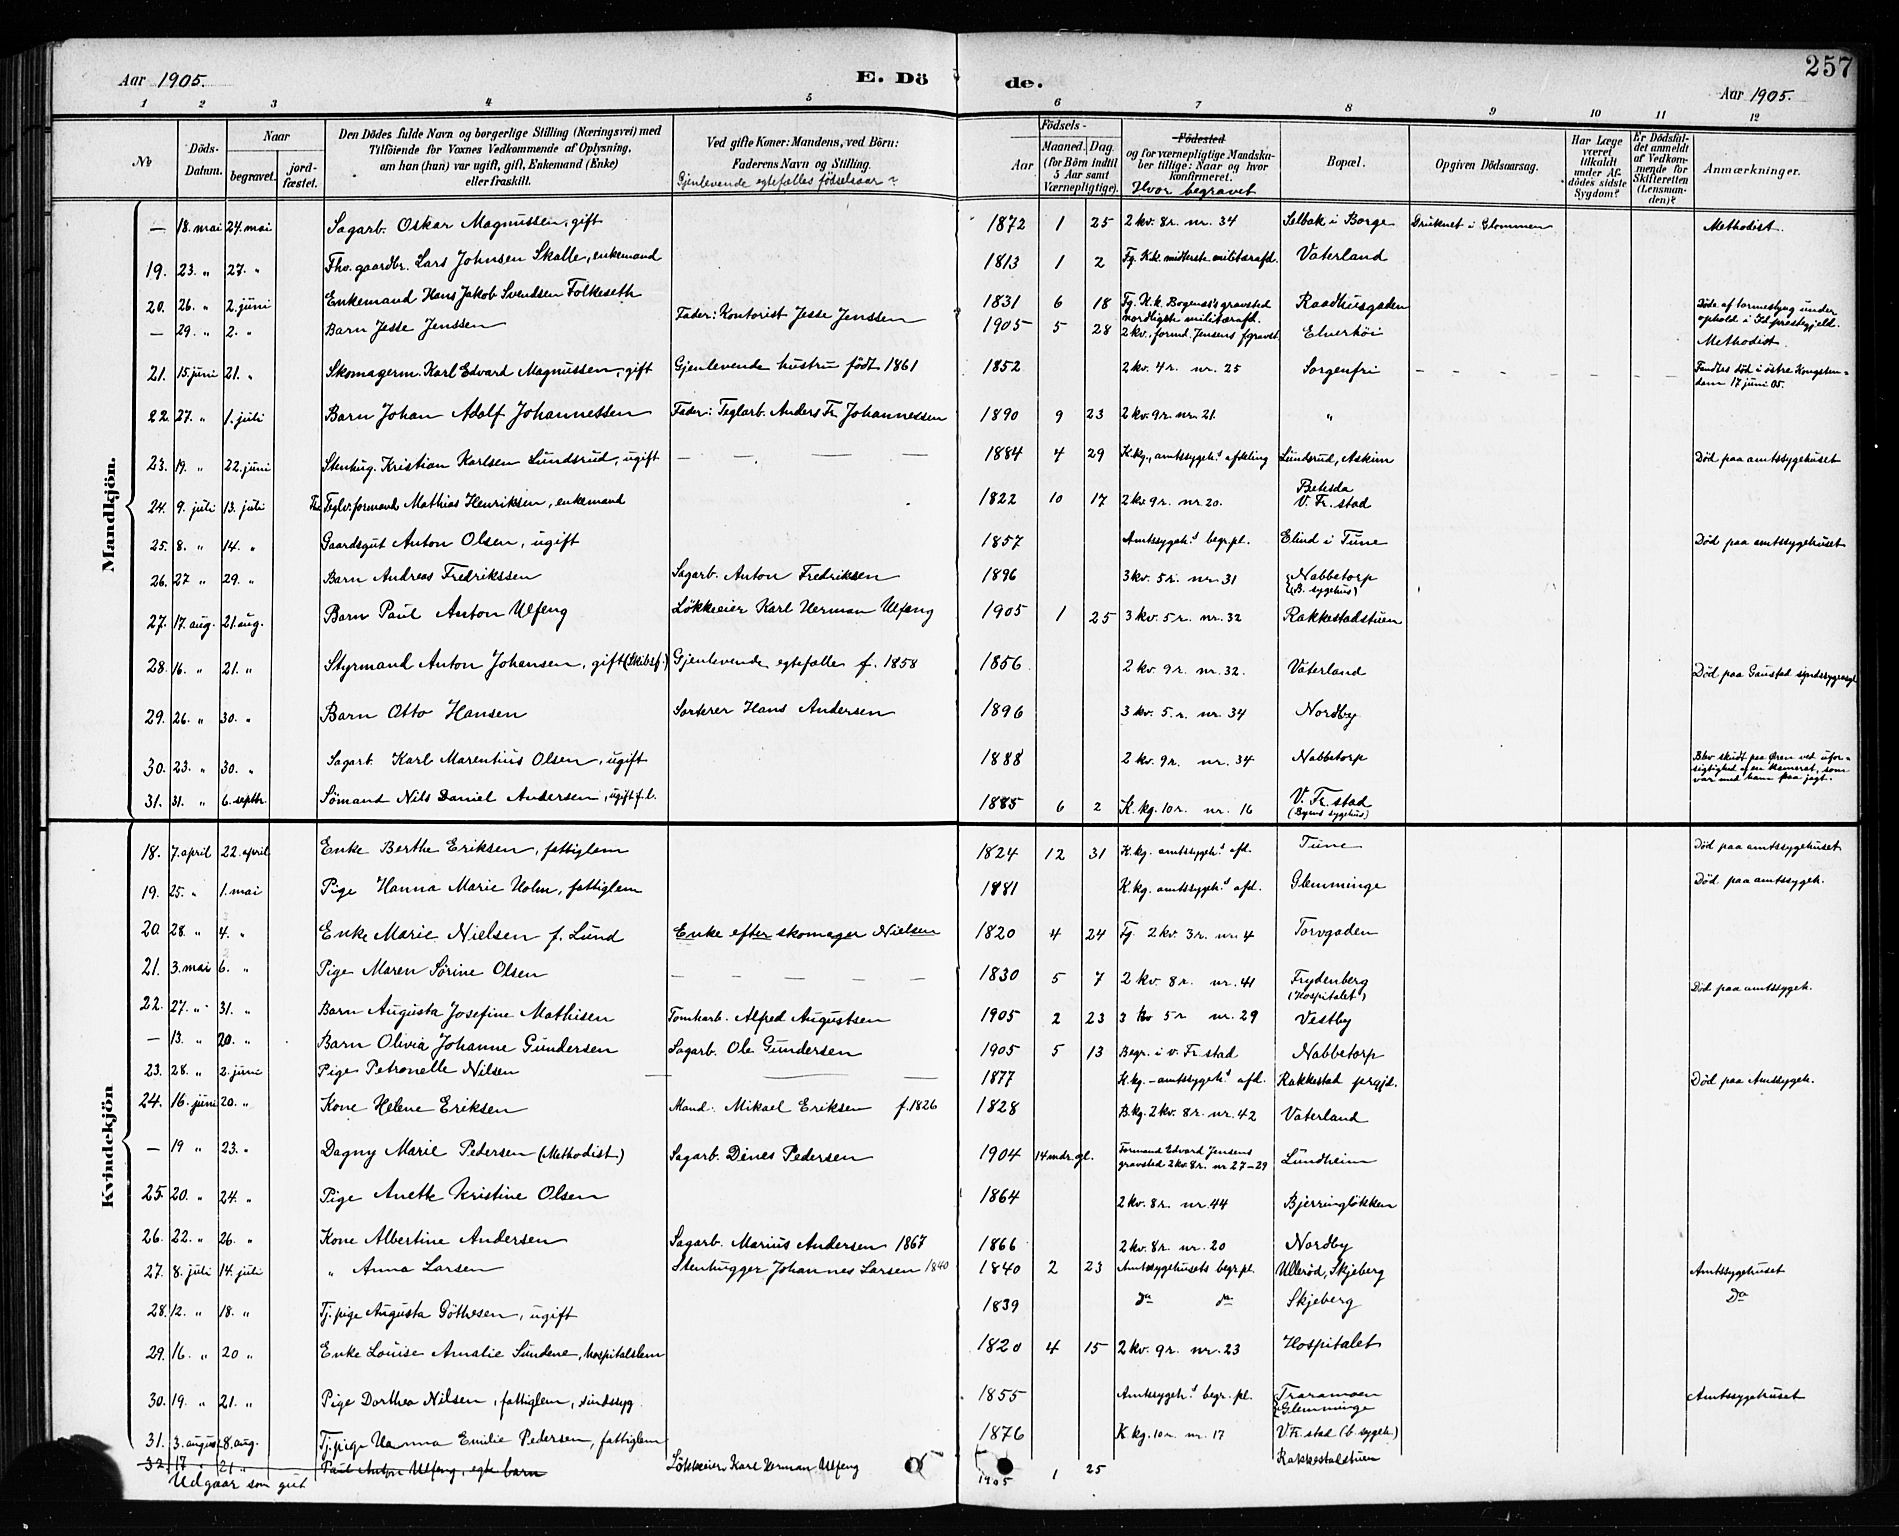 257
Aar 1905. E. Dö de. Aar 1905.
1 2 3 4 5 6 7 8 9 10 11 12
No Döds-Datum. Naar begravet. jordfæstet. Den Dödes fulde Navn og borgerlige Stilling (Næringsvei) med Tilföiende for Voxnes Vedkommende af Oplysning, om han (hun) var ugift, gift, Enkemand (Enke) eller fraskilt. Ved gifte Koner: Mandens, ved Börn: Faderens Navn og Stilling. Gjenlevende egtefælles födselsaar? Födsels- Aar Maaned. Dag. (for Börn indtil 5 Aar samt Værnepligtige). Födested og for værnepligtige Mandskaber tillige: Naar og hvor konfirmeret. Hvor begravet Bopæl. Opgiven Dödsaarsag. Har Læge været tilkaldt under Afdödes sidste Sygdom? Er Dödsfaldet anmeldt af Vedkommende for Skifteretten (Lensmanden)? Anmærkninger.
Mandkjön.
— 18. mai 24. mai Sagarb. Oskar Magnussen, gift 1872 1 25 2 kv. 8 r. nr. 34 Selbak i Borge Druknet i Glommen Methodist.
19. 23. " 27. " Fhv. gaardbr. Lars Johnsen Skalle, enkemand 1813 1 2 Fg. K.k. midterste militærafd. Vaterland
20. 26. " 2. juni Enkemand Hans Jakob Svendsen Folkeseth 1831 6 18 Fg. K.k. Bogens's gravsted nordligste militærafd. Raadhusgaden Döde af tarmeslyng under ophold i Id prestegjeld.
— 29. " 2. " Barn Jesse Jenssen Fader: Kontorist Jesse Jenssen 1905 5 28 2 kv., formd. Jensens fgravst Elverhöi Methodist.
21. 15 juni 21. " Skomagerm. Karl Edvard Magnussen, gift Gjenlevende hustru födt 1861 1852 2 kv. 4 r. nr. 25 Sorgenfri — — — — — — Fandtes död i östre Kongsten-dam 17 juni 05.
22. 27. " 1. juli Barn Johan Adolf Johannessen Fader: Teglarb. Anders Fr. Johannessen 1890 9 23 2 kv. 9 r. nr. 21. "
23. 19. " 22. juni Stenhug. Kristian Karlsen Lundsrud, ugift — — — — — 1884 4 29 K.kg., amtssygeh.s afdeling Lundsrud, Askim Död paa amtssygehuset
24. 9. juli 13. juli Fhv. Teglv. formand Mathias Henriksen, enkemand 1822 10 17 2 kv 9 r. nr 20. Betesda V. Fr. stad
25. 8. " 14. " Gaardsgut Anton Olsen, ugift 1857 Amtssygeh.s begr. pl. Elind i Tune Död paa amtssygehuset
26. 27 " 29. " Barn Andreas Fredrikssen Sagarb. Anton Fredriksen 1896 3 kv. 5 r. nr. 31 Nabbetorp (B. sygehus)
27. 17. aug. 21. aug. Barn Paul Anton Ulfeng Lökkeeier Karl Herman Ulfeng 1905 1 25 3 kv. 5 r. nr. 32 Rakkestadstuen
28. 16. " 21. " Styrmand Anton Johansen, gift (Skibsf.) Gjenlevende egtefælle f. 1858 1856 2 kv. 9 r. nr. 32. Vaterland Död paa Gaustad sindssygeasyl
29. 26. " 30. " Barn Otto Hansen Sorterer Hans Andersen 1896 3 kv. 5. r. nr. 34 Nordby
30. 23. " 30. " Sagarb. Karl Marentius Olsen, ugift 1888 2 kv. 9 r. nr. 34 Nabbetorp Blev skudt paa Øren ved ufor-sigtighed af en kamerat, som var med ham paa jagt.
31. 31. " 6. septbr. Sömand Nils Daniel Andersen, ugift f. l. 1885 6 2 K. kg. 10 r. nr. 16 V. Fr. stad (Byens sygehus)
Kvindekjön
18. 7. april 22. april Enke Berthe Eriksen, fattiglem 1824 12 31 K.kg. amtssygeh.s afd. Tune Död paa amtssygehuset
19. 25. " 1. mai Pige Hanna Marie Holm, fattiglem 1881 K.kg. amtssygeh.s afd. Glemminge Död paa amtssygeh.
20. 28. " 4. " Enke Marie Nielsen f. Lund Enke efter skomager Nielsen 1820 4 24 Fg 2 kv. 3 r. nr. 4 Torvgaden
21. 3. mai 6. " Pige Maren Sörine Olsen — — — — — 1830 5 7 2 kv. 8 r. nr. 41 Frydenberg (Hospitalet)
22. 27. " 31. " Barn Augusta Josefine Mathisen Tomtarb. Alfred Augustsen 1905 2 23 3 kv 5 r nr. 29 Vestby Död paa amtssygeh.
— 13. " 20. " Barn Olivia Johanne Gundersen Sagarb. Ole Gundersen 1905 5 13 Begr. i v. Fr. stad Nabbetorp
23. 28. " 2. juni Pige Petronelle Nilsen — — — 1877 K.kg. - amtssygeh.s afd. Rakkestad prgjd. Död paa Amtssygeh.
24. 16. juni 20. " Kone Helene Eriksen Mand. Mikael Eriksen f. 1826 1828 B.kg. 2 kv. 8 r. nr. 42 Vaterland
— 19 " 23. " Dagny Marie Pedersen (Methodist) Sagarb. Dines Pedersen 1904 14 mdr. gl. Formand Edvard Jensens gravsted 2 kv. 8 r. nr 27-29 Lundheim
25. 20. " 24. " Pige Anette Kristine Olsen 1864 2 kv. 8 r. nr. 44 Bjerringlökken
26. 22. " 26. " Kone Albertine Andersen Sagarb. Marius Andersen 1867 1866 2 kv. 8 r. nr. 20 Nordby
27. 8. juli 14. juli " Anna Larsen Stenhugger Johannes Larsen 1840 1840 2 23 Amtssygehusets begr. pl. Ulleröd, Skjeberg Amtssygehuset
28. 12. " 18. " Tj. pige Augusta Göthesen, ugift 1839 do do Skjeberg Do
29. 16. " 20 " Enke Louise Amalie Sundene, hospitalslem 1820 4 15 2 kv. 9 r. nr. 23 Hospitalet
30. 19. " 21. " Pige Dorthea Nilsen, fattiglem, sindssyg 1855 Amtssygeh.s begr. pl. Traramoen Glemminge Amtssygehuset
31. 3. august 8. aug. Tj. pige Hanna Emilie Pedersen, fattiglem 1876 K kg. 10 r. nr. 17 V Fr. stad (b. sygeh.)
32. 17 " 21 " Paul Anton Ulfeng, egte barn Lökkeeier Karl Herman Ulfeng 1905 1 25 Rakkestadstuen
Udgaar som gut